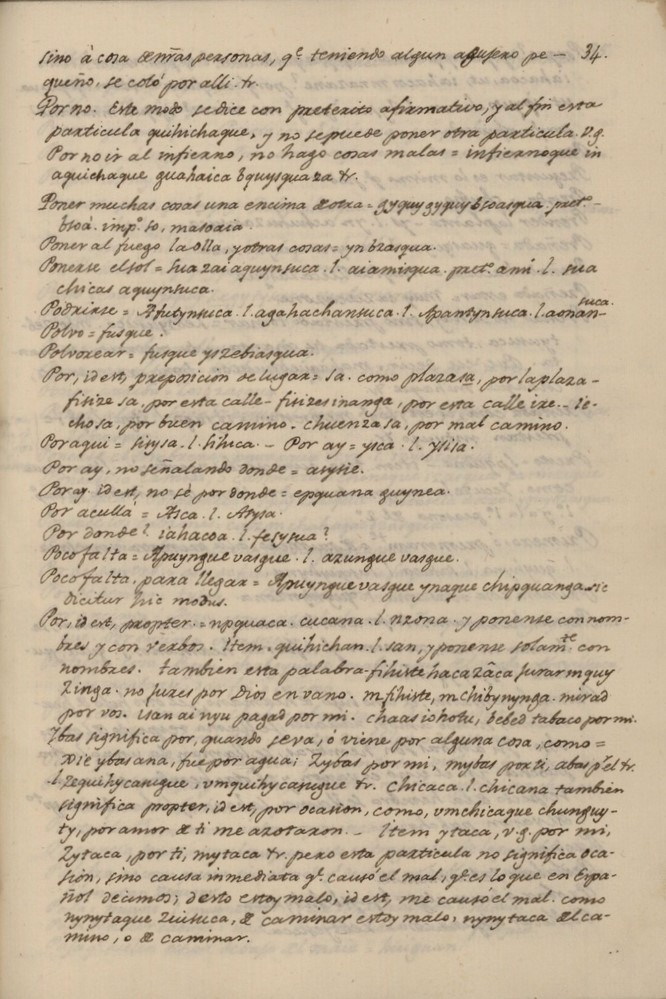 sino à cosa de nr̃as personas, q.e teniendo algun agujero pe- 34.
queño, se coló por alli. tr.
Por no. Este modo se dice con preterito afirmativo, y al fin esta
particula quihichaque, y no se puede poner otra particula. v.g.
Por no ir al infierno, no hago cosas malas = infiernoque in
aquichaque guahaica bquysquaza tr.
Poner muchas cosas una encima de otra = gyquy gyquy bsoasqua. pret.o
bsoá. imp.o so, masoxia.
Poner al fuego la olla, y otras cosas = yn bzasqua.
Ponerse el sol = sua zai aquynsuca. l. aiamisqua. pret.o ami. l. sua
chicas aquynsuca.
Podrirse = Afutynsuca. l. agahachansuca. l. Apantynsuca. l. aonan-
suca.
Polvo = fusque.
Polvorear = fusque yszebiasqua.
Por, id est, preposicion de lugar = sa. como plazasa, por la plaza-
fisize sa, por esta calle - fisizesinanga, por esta calle ire. - ie-
cho sa, por buen camino. chuenzasa, por mal camino.
Por aqui = sisysa. l. sihica. - Por ay = ysca. l. ysisa.
Por ay, no señalando donde = asysie.
Por ay. id est, no sè por donde = epquana guynea.
Por acullà = Asca. l. Asysa.
Por donde? iahacoa. l. fesysua?
Poco falta = Apuyngue vasque. l. azungue vasque.
Poco falta, para llegar = Apuyngue vasque ynaque chipquanga. sic
dicitur hic modus.
Por, id est, propter. = npquaca. cucana. l. nzona. y ponense con nom-
bres y con verbos. Item. quihichan. l. san, y ponense solam.te con
nombres. tambien esta palabra - fihiste haca zâca jurar mguy
zinga. no jures por Dios en vano. m fihiste, m chibynynga. mirad
por vos. isan ai nyu pagad por mi. chaas iohotu, bebed tabaco por mi.
Ybas significa por, quando se va, ò viene por alguna cosa, como =
Sie ybas ana, fue por agua; Zybas por mi, mybas por ti, abas p.r el tr.
l. zequihycanigue, vmquihycanigue tr. chicaca. l. chicana tambien
significa propter, id est, por ocasion, como, vmchicaque chunguy-
ty, por amor de ti me azotaron. - Item ytaca, v.g. por mi,
zytaca, por ti, mytaca tr. pero esta particula no significa oca-
sion, sino causa inmediata q.e causó el mal, q.e es lo que en Espa-
ñol decimos; desto estoy malo, id est, me causó el mal. como
nynytaque ziusuca, de caminar estoy malo, nynytaca del ca-
mino, o de caminar.